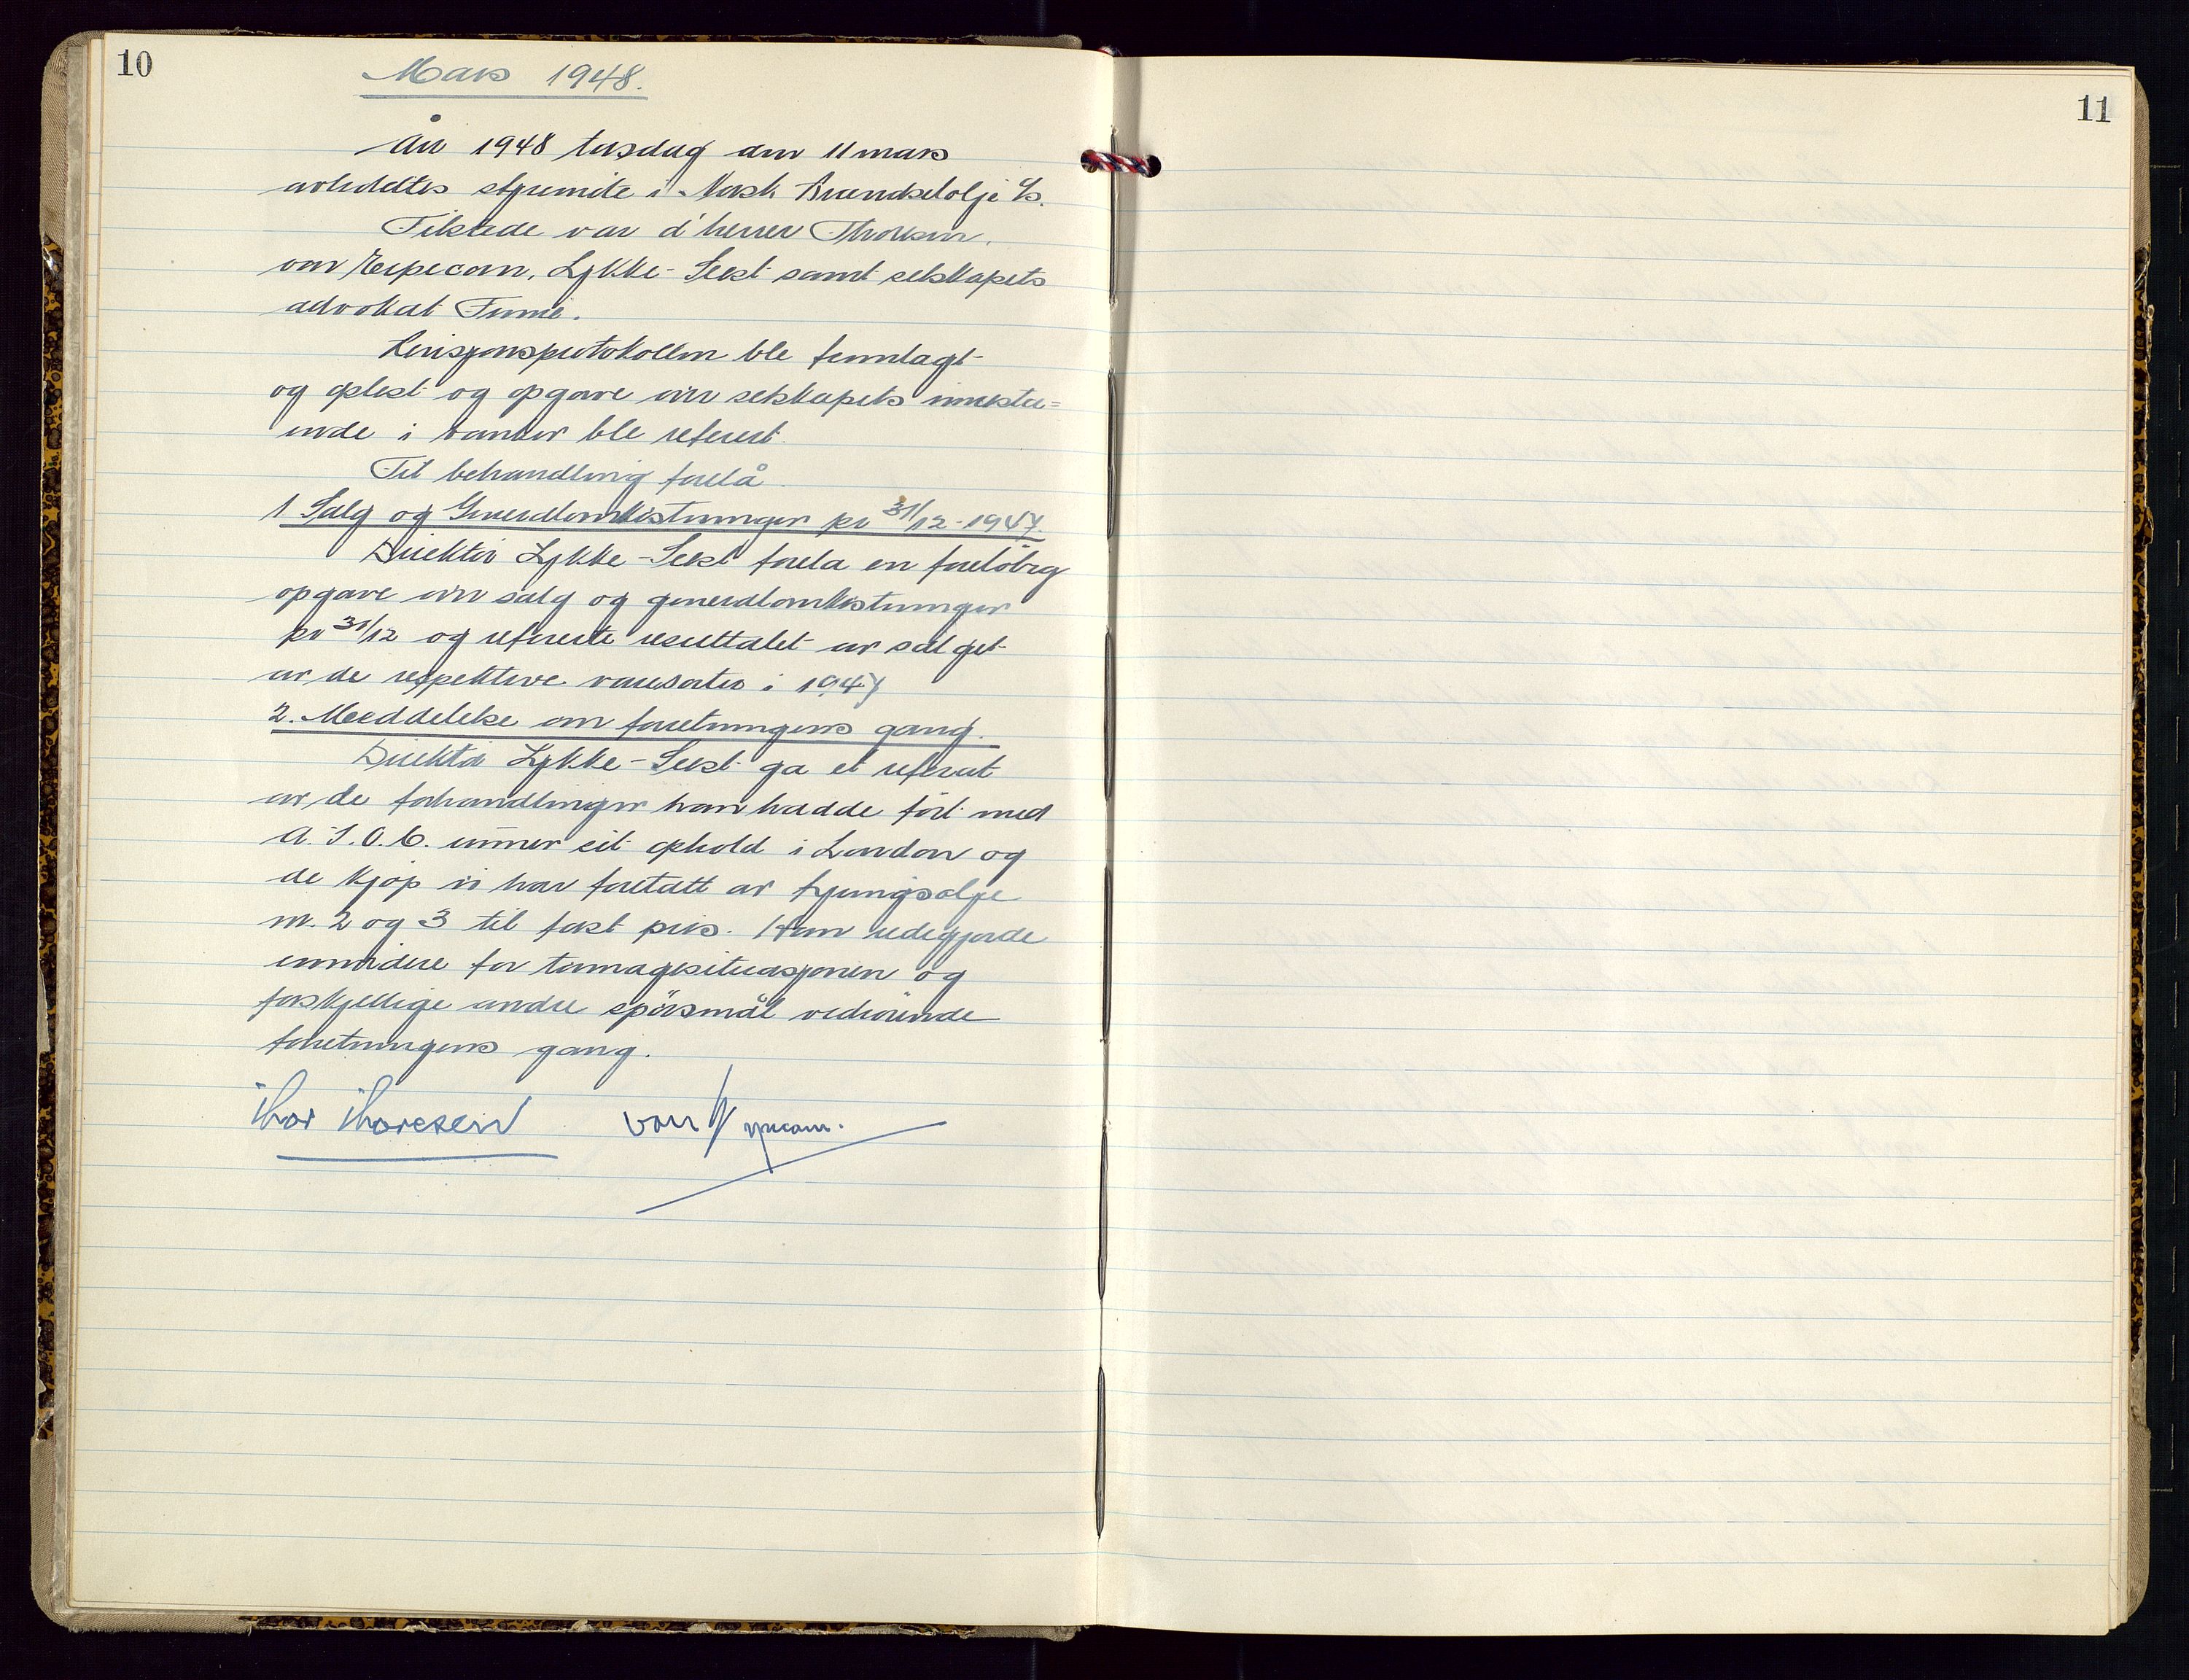 10
Mars 1948.
År 1948 torsdag den 11 mars
avholdtes styremöte i Norsk Brændselolje A/S.
Tilstede var d'herrer Thoresen,
von Krepecom, Lykke-Seest samt selskapets
advokat
Revisjonsprotokollen ble fremlagt
og oplest og opgave over selskapets inneståe=
ende i banker ble referert.
Til behandling forelå.
1. Salg og Generalomkostninger pr 31/12-1947.
Direktör Lykke-Seest forela en forelöbig
opgave over salg og generalomkostninger
pr 31/12 og refererte resultatet av salget
av de respektive varesorter i 1947
2. Meddelelse om forretningens gang.
Direktör Lykke-Seest ga et referat
av de forhandlinger han hadde fört med
A.I.O.C. under sit ophold i London og
de kjöp vi har foretatt av fyringsolje
nr. 2 og 3 til fast pris. Han redegjorde
enn videre for tonnagesituasjonen og
forskjellige andre spörsmål vedrörende
forretningens gang.
Thor Thoresen von
11